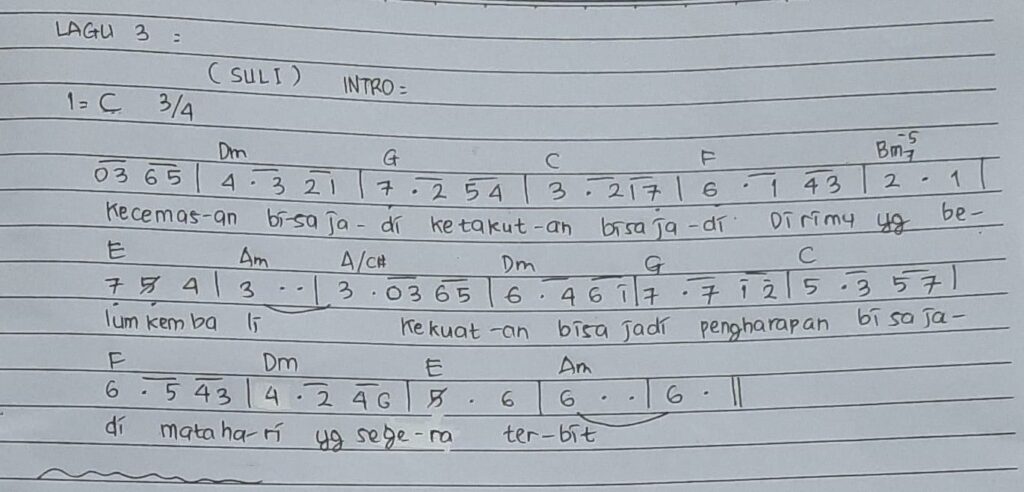 LAGU 3 :
(SULI) INTRO =
1 = C 3/4
Dm G C F Bm7-5
03 65 | 4 . 3 21 | 7 . 2 54 | 3 . 217 | 6 . 1 43 | 2 . 1 |
Kecemas-an bi-sa ja-di ketakut-an bisa ja-di Dirimu yg be-
E Am A/C# Dm G C
7 5 4 | 3 . . | 3 . 03 65 | 6 . 4 6 1 | 7 . 7 1 2 | 5 . 3 5 7 |
lum kem ba li Kekuat-an bisa jadi pengharapan bi sa ja-
F Dm E Am
6 . 5 43 | 4 . 2 46 | 5 . 6 | 6 . . | 6 . ||
di mataha-ri yg sege-ra ter-bit